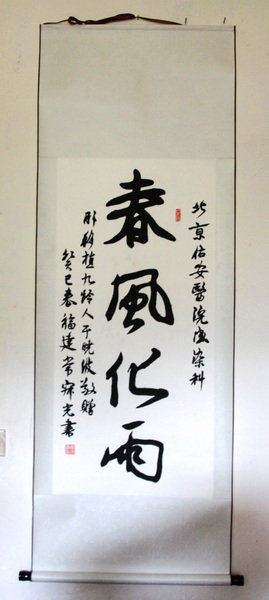 北京佑安醫院感染科
春風化雨
肝移植九龄人于晓波敬贈
癸巳春福建常光書